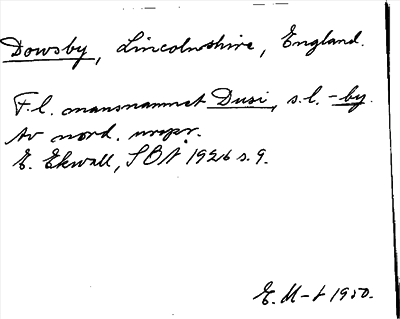 Dowsby, Lincolnshire, England.
F.l. mansnamnet Dusi, s.l. -by.
Av nord. urspr.
E. Ekwall, SBÅ 1926 s. 9.
E. M-t 1950.